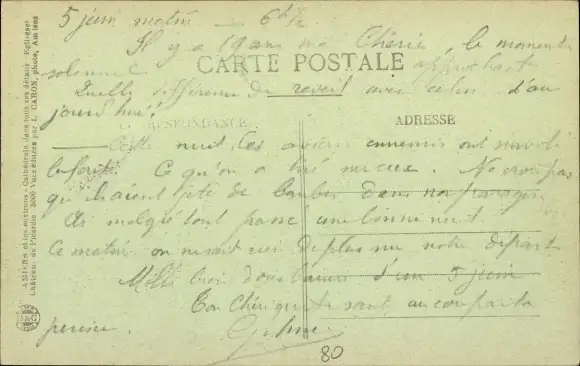 5 juin matin — 6h ½
Il y a 19 ans ma Chérie, le moment
solennel approchait
CARTE POSTALE
Quelle différence de reveil avec celui d'au
jourd'hui!
CORRESPONDANCE
ADRESSE
Cette nuit, les avions ennemis ont survolé
Ce qu'on a tiré sur eux. Ne crois pas
qu'ils aient jeté de bombes dans nos parages
Ai malgré tout passé une bonne nuit
Ce matin on ne sait rien de plus sur notre départ
Mille bien doux baisers d'un 5 juin
Ton Chéri qui te sent au cœur par la
pensée.
80
AMIENS et ses environs - Cathédrale dans tous ses détails - Églises et
Châteaux de Picardie - 3000 Vues éditées par L. CARON, photo, Amiens